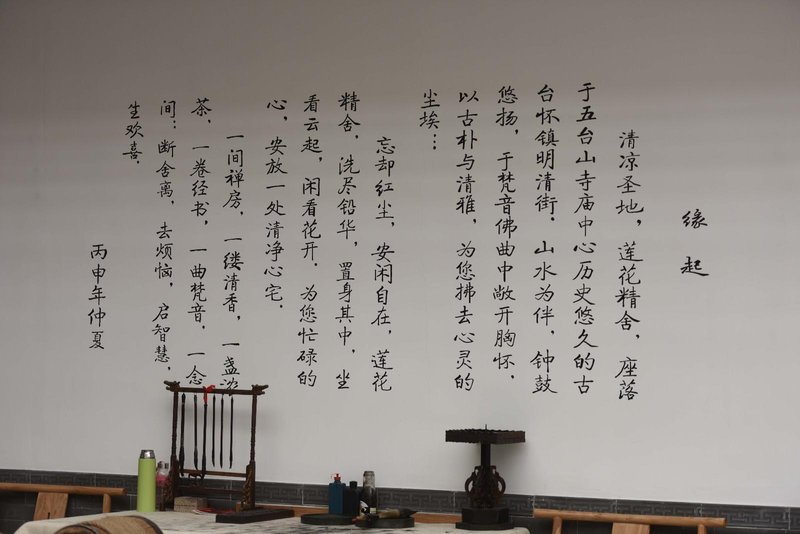 缘起
清凉圣地，莲花精舍，座落
于五台山寺庙中心历史悠久的古
台怀镇明清街．山水为伴，钟鼓
悠扬，于梵音佛曲中敞开胸怀．
以古朴与清雅，为您拂去心灵的
尘埃…
忘却红尘，安闲自在，莲花
精舍，洗尽铅华，置身其中，坐
看云起，闲看花开．为您忙碌的
心，安放一处清净心宅．
一间禅房，一缕清香，一盏
茶，一卷经书，一曲梵音，一念
间：断舍离，去烦恼，启智慧，
生欢喜．
丙申年仲夏